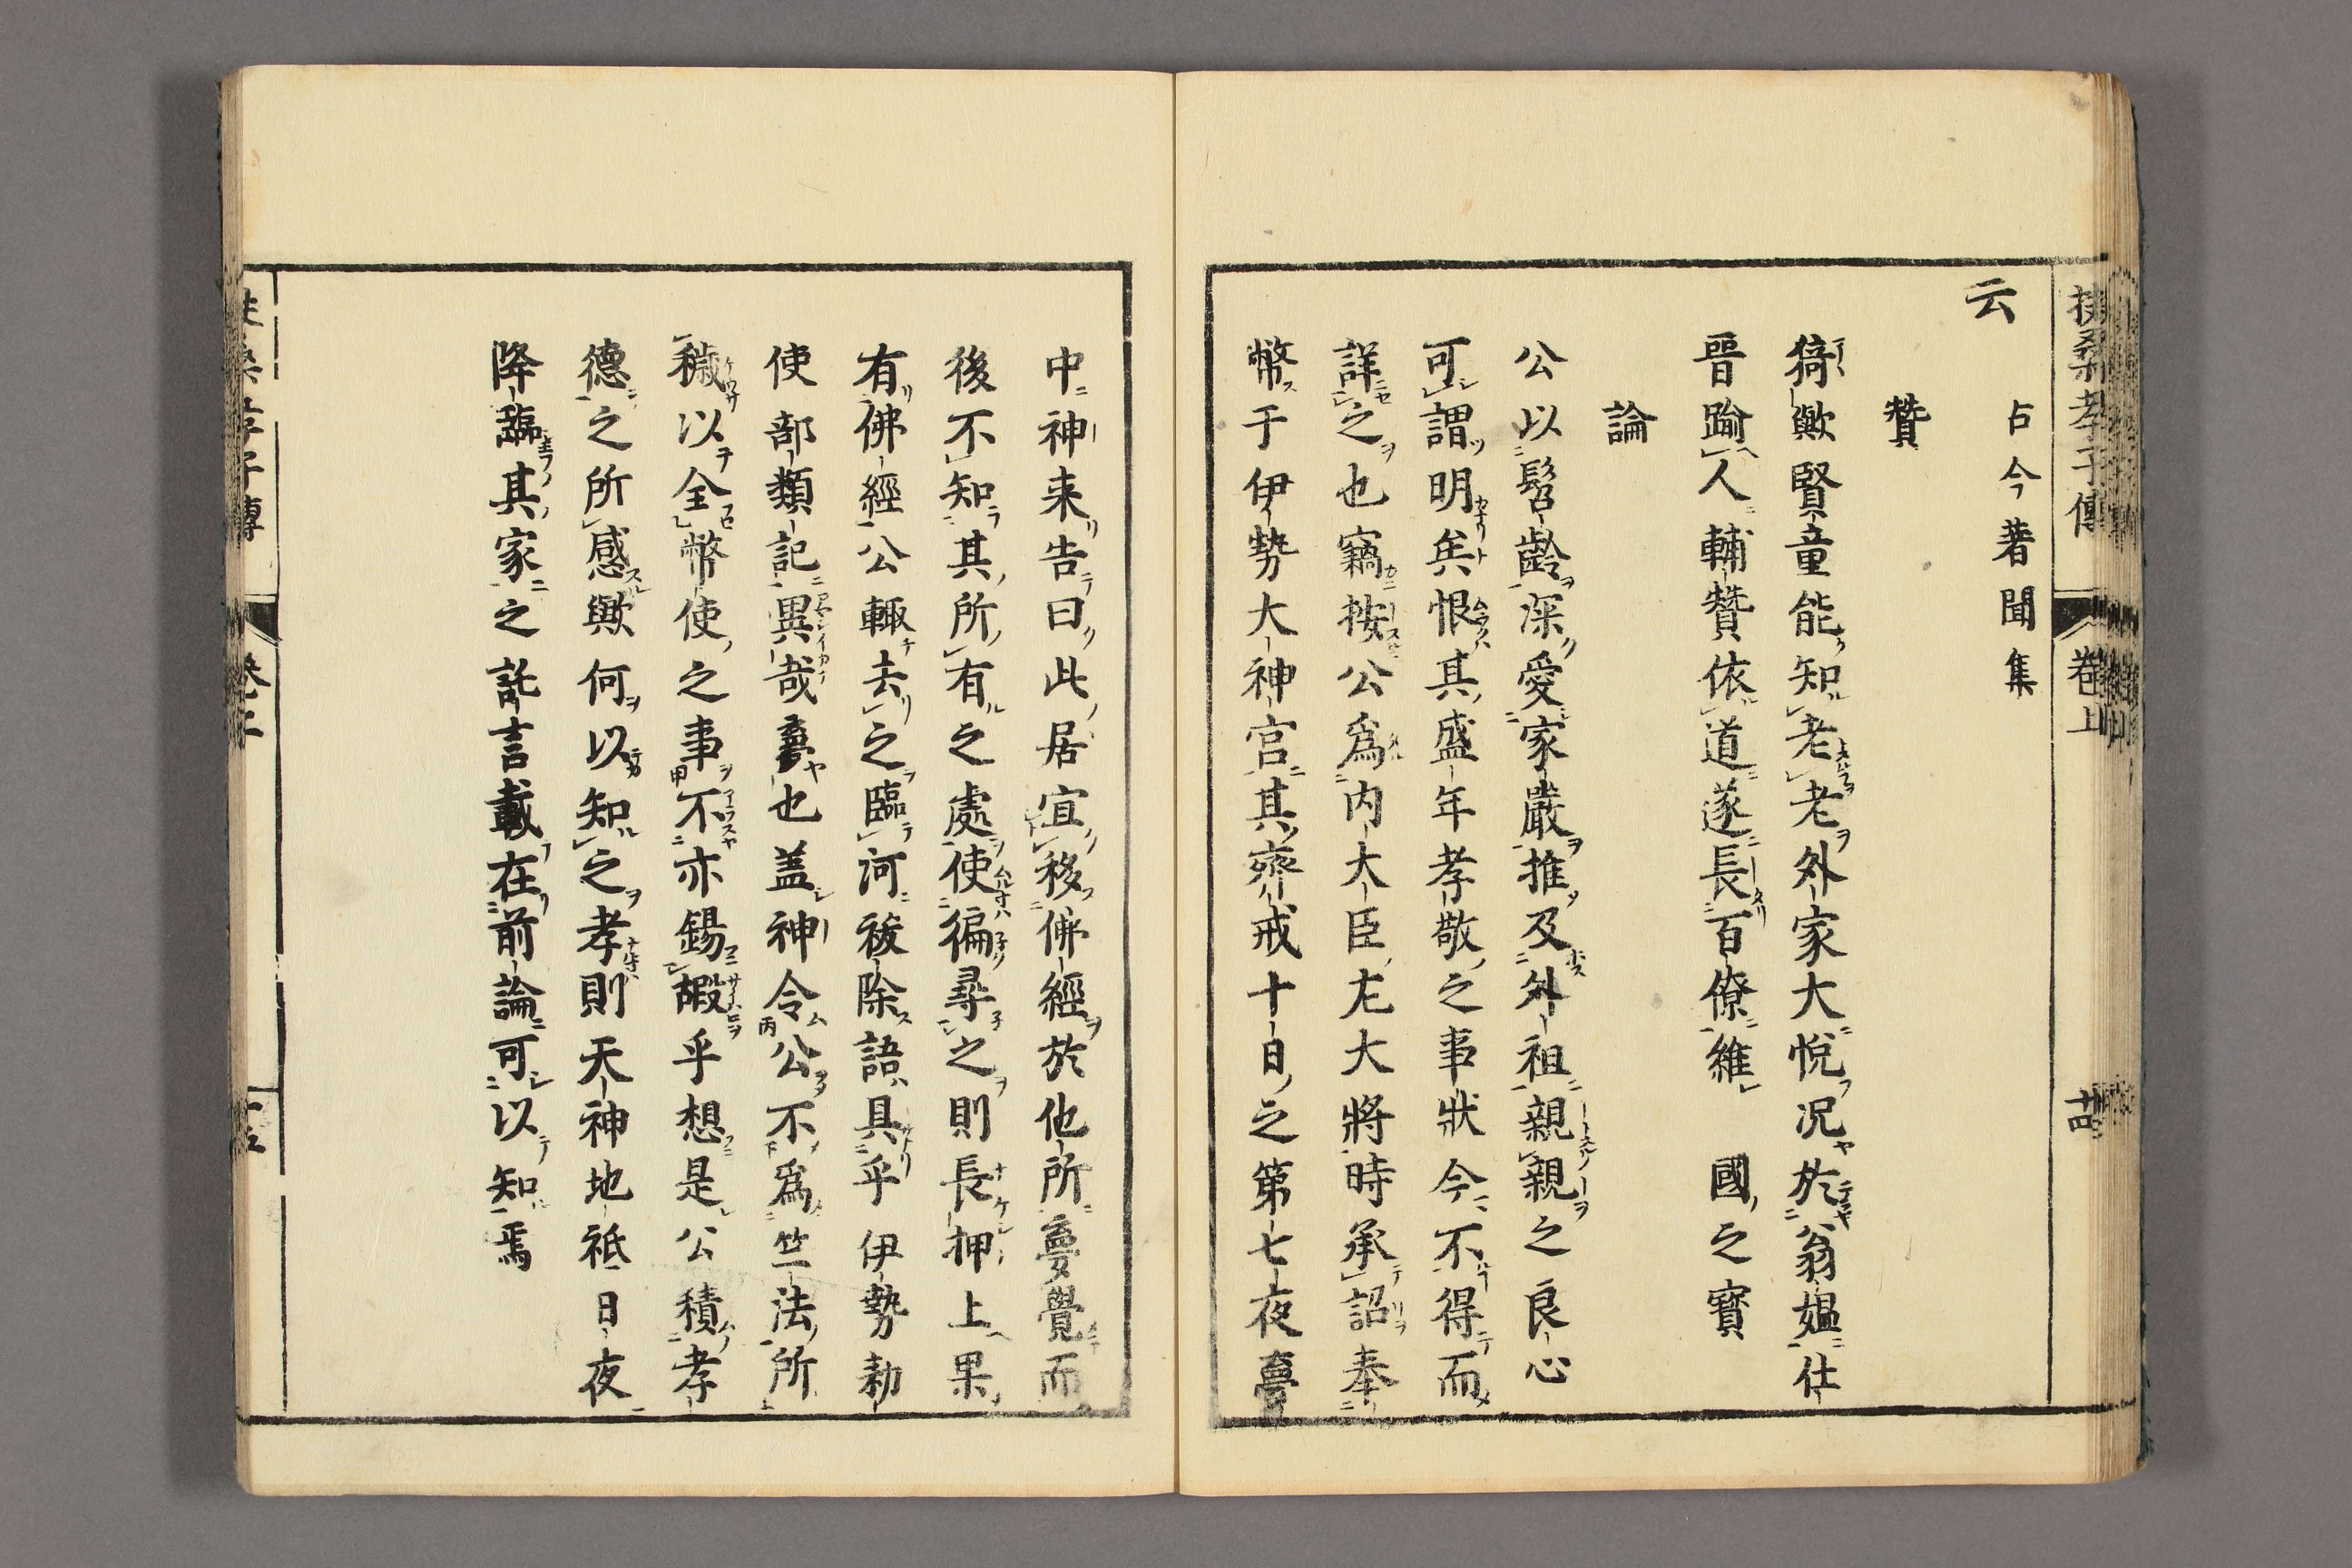 扶桑孝子傳 卷上 十四
云 占今著聞集
賛
猗歟賢童能知老老外家大悅況於翁媼仕
晉踰人輔贊依道遂長百僚維 國之寶
論
公以髫齡深愛家嚴推及外祖親親之良心
可謂明矣恨其盛年孝敬之事狀今不得而
詳之也竊按公爲内大臣尤大將時承詔奉
幣于伊勢大神宮其齋戒十日之第七夜夢
中神来告曰此居宜移佛經於他所夢覺而
後不知其所有之處使徧尋之則長押上果
有佛經公輙去之臨河祓除語具乎伊勢勅
使部類記異哉夢也盖神令公不爲竺法所
穢以全幣使之事不亦錫嘏乎想是公積孝
德之所感歟何以知之孝則天神地祗日夜
降臨其家之託言載在前論可以知焉